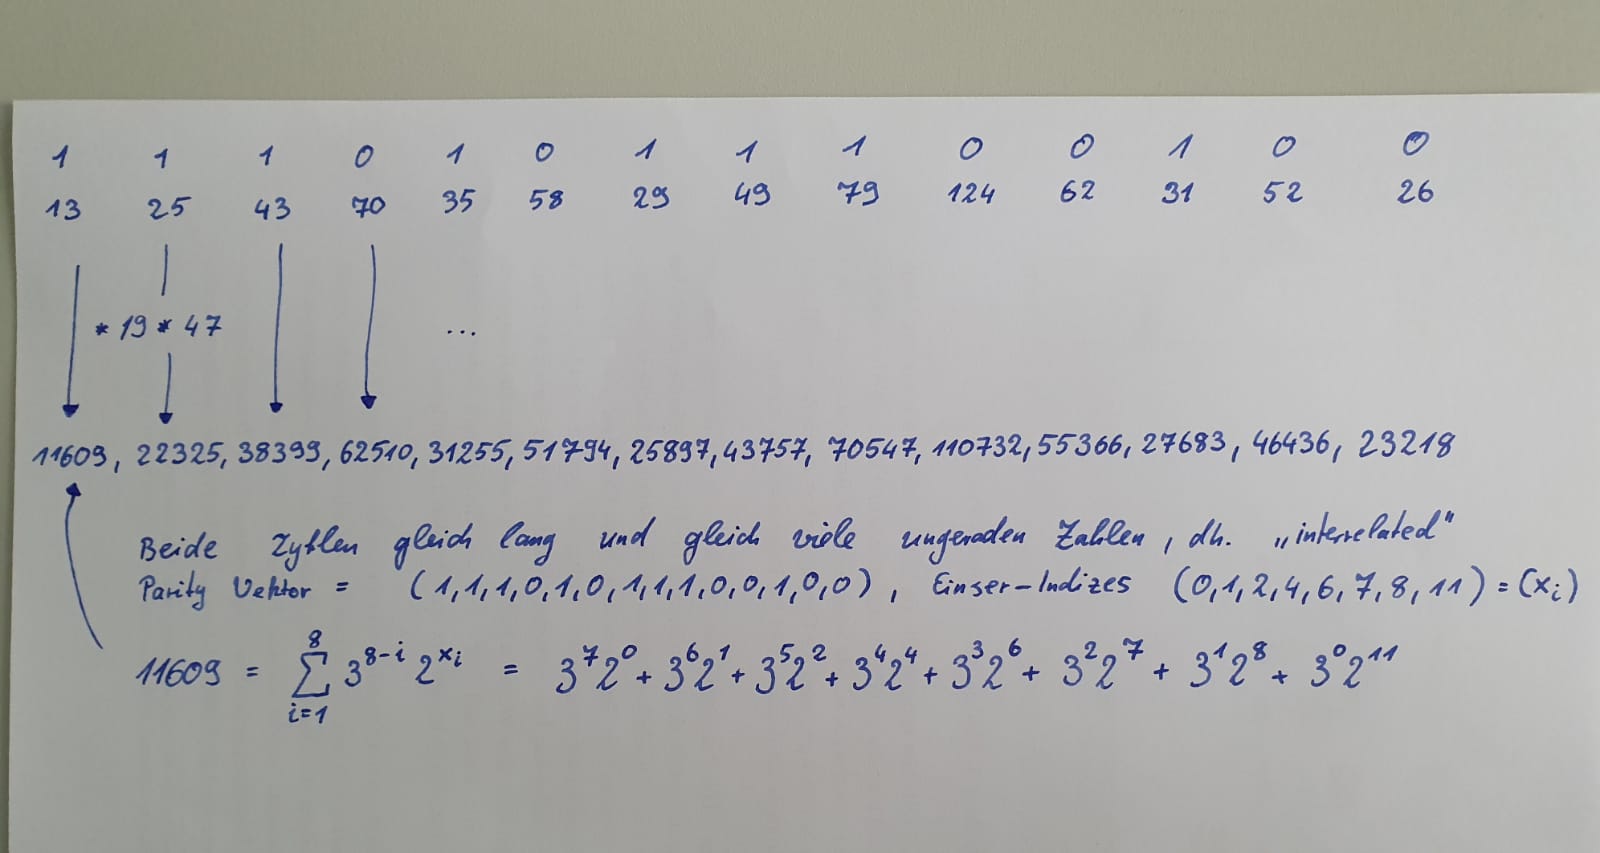 1 1 1 0 1 0 1 1 1 0 0 1 0 0
13 25 43 70 35 58 29 49 79 124 62 31 52 26
* 19 * 47 ...
11609, 22325, 38399, 62510, 31255, 51794, 25897, 43757, 70547, 110732, 55366, 27683, 46436, 23218
Beide Zyklen gleich lang und gleich viele ungeraden Zahlen, dh. „interrelated"
Parity Vektor = (1,1,1,0,1,0,1,1,1,0,0,1,0,0), Einser-Indizes (0,1,2,4,6,7,8,11) = (xᵢ)
11609 = ∑_{i=1}^{8} 3^{8-i} 2^{x_i} = 3^7 2^0 + 3^6 2^1 + 3^5 2^2 + 3^4 2^4 + 3^3 2^6 + 3^2 2^7 + 3^1 2^8 + 3^0 2^11